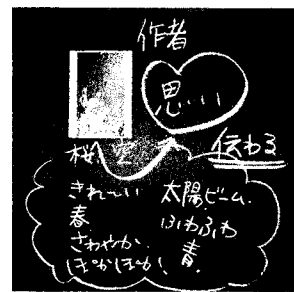 作者
思い
桜
空
伝わる
きれーい
春
さわやか
ぽかぽか
太陽ビーム
ふわふわ
青